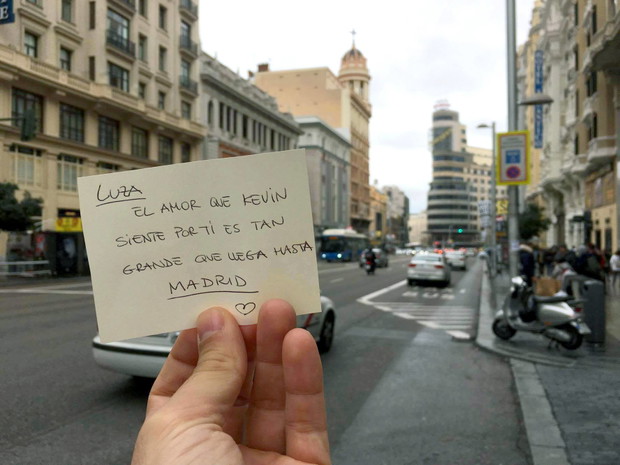 LUZA
EL AMOR QUE KEVIN
SIENTE POR TI ES TAN
GRANDE QUE LLEGA HASTA
MADRID
♡